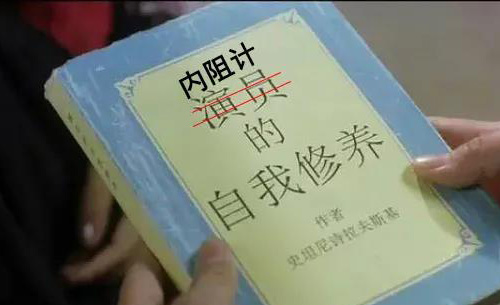 内阻计
演员
的
自我修养
作者
史坦尼诗拉夫斯基